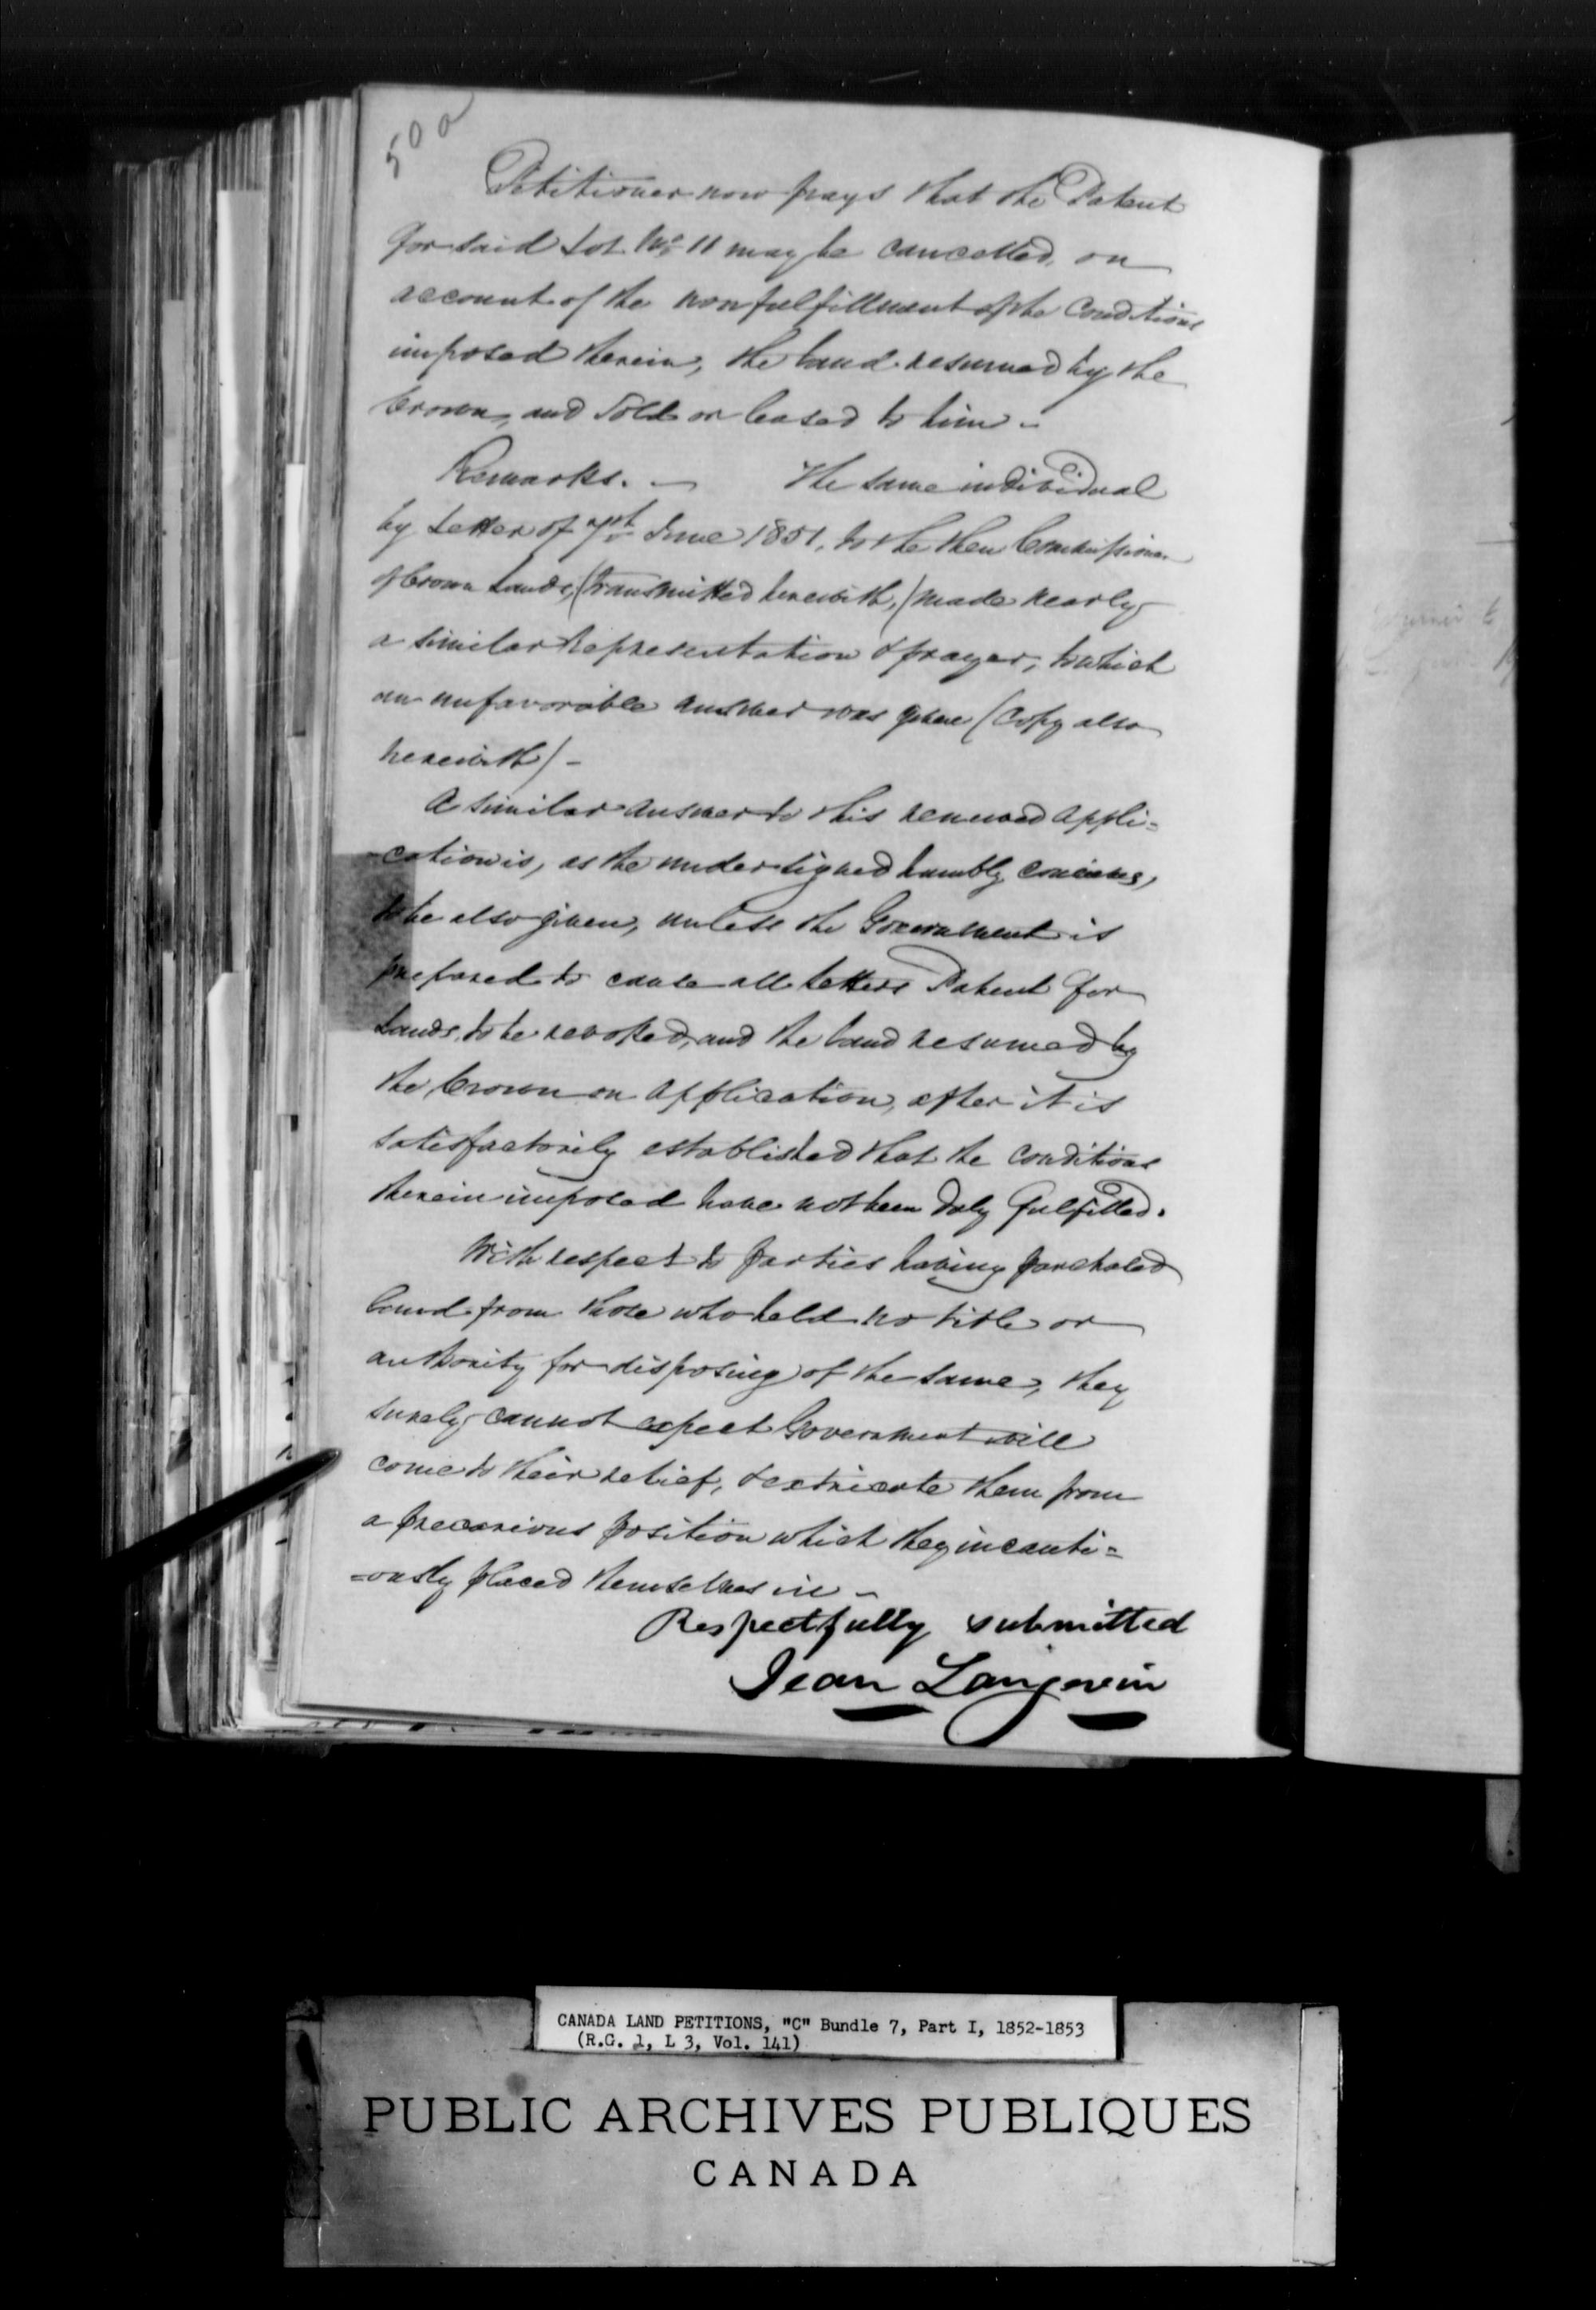 50a
Petitioner now prays that the Patent
for said Lot No. 11 may be cancelled, on
account of the nonfulfillment of the Conditions
imposed therein, the land resumed by the
Crown, and sold or leased to him –
Remarks. – The same individual
by Letter of June 1851, to the then Commissioner
of Crown Lands, (transmitted herewith,) made nearly
a similar representation & prayer, to which
an unfavorable answer was given (Copy also
herewith) –
A similar answer to this renewed appli=
cation is, as the undersigned humbly conceives,
to be also given, unless the Government is
prepared to cause all Letters Patent for
Lands, to be revoked, and the land resumed by
the Crown on application, after it is
satisfactorily established that the conditions
therein imposed have not been duly fulfilled.
With respect to parties having purchased
land from those who held no title or
authority for disposing of the same, they
surely cannot expect Government will
come to their relief, & extricate them from
a precarious position which they incauti=
=ously placed themselves in –
Respectfully submitted
Jean Langevin
CANADA LAND PETITIONS, "C" Bundle 7, Part I, 1852-1853
(R.G. 1, L 3, Vol. 141)
PUBLIC ARCHIVES PUBLIQUES
CANADA